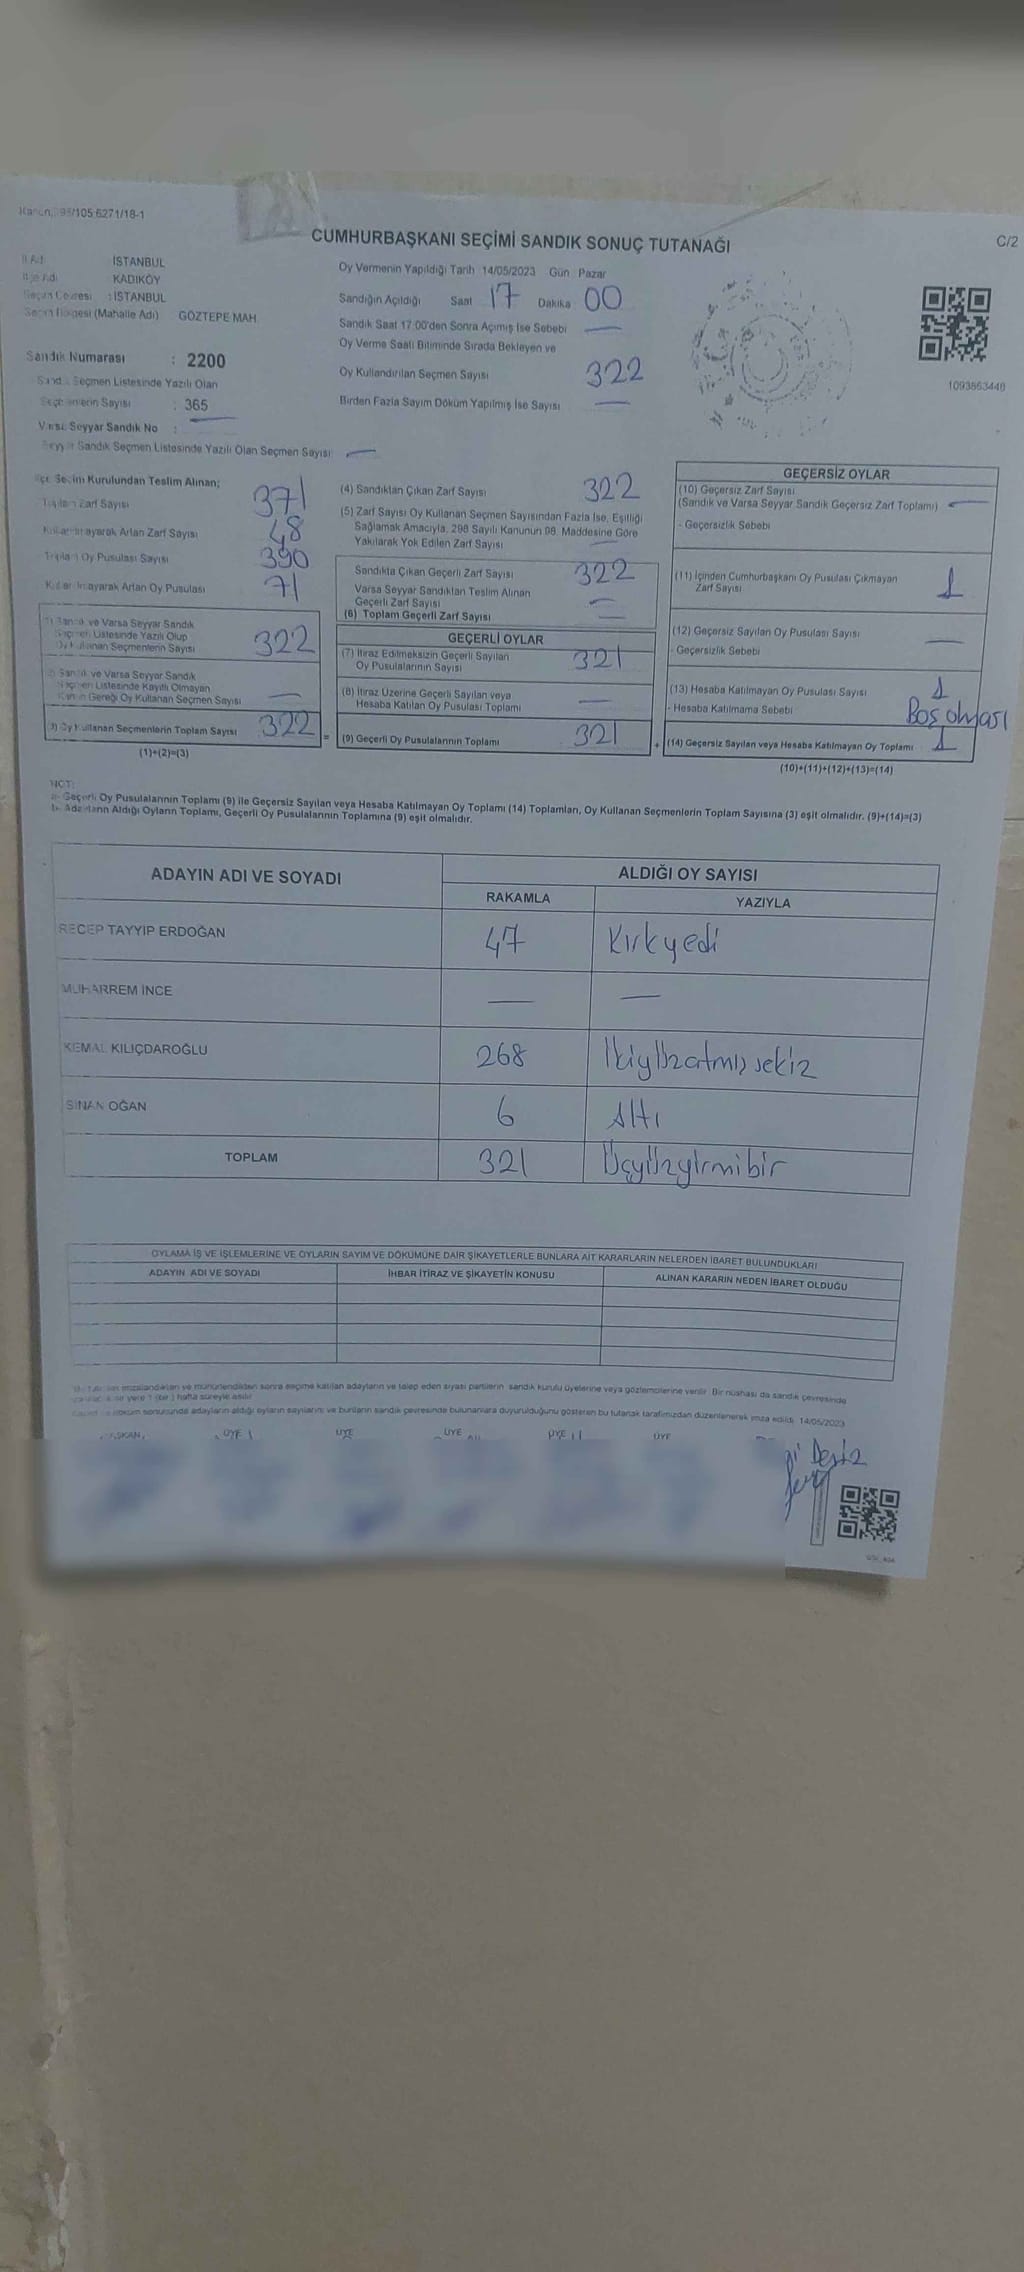 98/105 6271/18-1
C/2
CUMHURBAŞKANI SEÇİMİ SANDIK SONUÇ TUTANAĞI
İl Adı İSTANBUL
İlçe Adı KADIKÖY
Seçim Çevresi : İSTANBUL
Seçim Bölgesi (Mahalle Adı) GÖZTEPE MAH.
Sandık Numarası : 2200
Sandık Seçmen Listesinde Yazılı Olan
Seçmenlerin Sayısı : 365
Varsa Seyyar Sandık No :
Seyyar Sandık Seçmen Listesinde Yazılı Olan Seçmen Sayısı: —
Oy Vermenin Yapıldığı Tarih 14/05/2023 Gün Pazar
Sandığın Açıldığı Saat 17 Dakika 00
Sandık Saat 17:00'den Sonra Açımış İse Sebebi —
Oy Verme Saati Bitiminde Sırada Bekleyen ve
Oy Kullandırılan Seçmen Sayısı 322
Birden Fazla Sayım Döküm Yapılmış İse Sayısı —
1093863448
İlçe Seçim Kurulundan Teslim Alınan;
Toplam Zarf Sayısı 371
Kullanılmayarak Artan Zarf Sayısı 48
Toplam Oy Pusulası Sayısı 390
Kullanılmayarak Artan Oy Pusulası 71
1) Sandık ve Varsa Seyyar Sandık
Seçmen Listesinde Yazılı Olup
Oy Kullanan Seçmenlerin Sayısı 322
2) Sandık ve Varsa Seyyar Sandık
Seçmen Listesinde Kayıtlı Olmayan
Kanun Gereği Oy Kullanan Seçmen Sayısı —
3) Oy Kullanan Seçmenlerin Toplam Sayısı 322 =
(1)+(2)=(3)
(4) Sandıktan Çıkan Zarf Sayısı 322
(5) Zarf Sayısı Oy Kullanan Seçmen Sayısından Fazla İse, Eşitliği
Sağlamak Amacıyla, 298 Sayılı Kanunun 98. Maddesine Göre
Yakılarak Yok Edilen Zarf Sayısı —
Sandıkta Çıkan Geçerli Zarf Sayısı 322
Varsa Seyyar Sandıktan Teslim Alınan
Geçerli Zarf Sayısı —
(6) Toplam Geçerli Zarf Sayısı —
GEÇERLİ OYLAR
(7) İtiraz Edilmeksizin Geçerli Sayılan
Oy Pusulalarının Sayısı 321
(8) İtiraz Üzerine Geçerli Sayılan veya
Hesaba Katılan Oy Pusulası Toplamı —
(9) Geçerli Oy Pusulalarının Toplamı 321 +
GEÇERSİZ OYLAR
(10) Geçersiz Zarf Sayısı
(Sandık ve Varsa Seyyar Sandık Geçersiz Zarf Toplamı) —
- Geçersizlik Sebebi
(11) İçinden Cumhurbaşkanı Oy Pusulası Çıkmayan
Zarf Sayısı 1
(12) Geçersiz Sayılan Oy Pusulası Sayısı —
- Geçersizlik Sebebi
(13) Hesaba Katılmayan Oy Pusulası Sayısı 1
- Hesaba Katılmama Sebebi Boş olması
(14) Geçersiz Sayılan veya Hesaba Katılmayan Oy Toplamı 1
(10)+(11)+(12)+(13)=(14)
NOT:
a- Geçerli Oy Pusulalarının Toplamı (9) ile Geçersiz Sayılan veya Hesaba Katılmayan Oy Toplamı (14) Toplamları, Oy Kullanan Seçmenlerin Toplam Sayısına (3) eşit olmalıdır. (9)+(14)=(3)
b- Adayların Aldığı Oyların Toplamı, Geçerli Oy Pusulalarının Toplamına (9) eşit olmalıdır.
ADAYIN ADI VE SOYADI
ALDIĞI OY SAYISI
RAKAMLA YAZIYLA
RECEP TAYYIP ERDOĞAN 47 Kırkyedi
MUHARREM İNCE — —
KEMAL KILIÇDAROĞLU 268 İkiyüzatmışsekiz
SİNAN OĞAN 6 Altı
TOPLAM 321 Üçyüzyirmibir
OYLAMA İŞ VE İŞLEMLERİNE VE OYLARIN SAYIM VE DÖKÜMÜNE DAİR ŞİKAYETLERLE BUNLARA AİT KARARLARIN NELERDEN İBARET BULUNDUKLARI
ADAYIN ADI VE SOYADI İHBAR İTİRAZ VE ŞİKAYETİN KONUSU ALINAN KARARIN NEDEN İBARET OLDUĞU
imzalandıktan ve mühürlendikten sonra seçime katılan adayların ve talep eden siyasi partilerin sandık kurulu üyelerine veya gözlemcilerine verilir. Bir nüshası da sandık çevresinde
bir yere 1 (bir) hafta süreyle asılır.
döküm sonucunda adayların aldığı oyların sayılarını ve bunların sandık çevresinde bulunanlara duyurulduğunu gösteren bu tutanak tarafımızdan düzenlenerek imza edildi. 14/05/2023
BAŞKAN ÜYE ÜYE ÜYE ÜYE ÜYE
Deniz